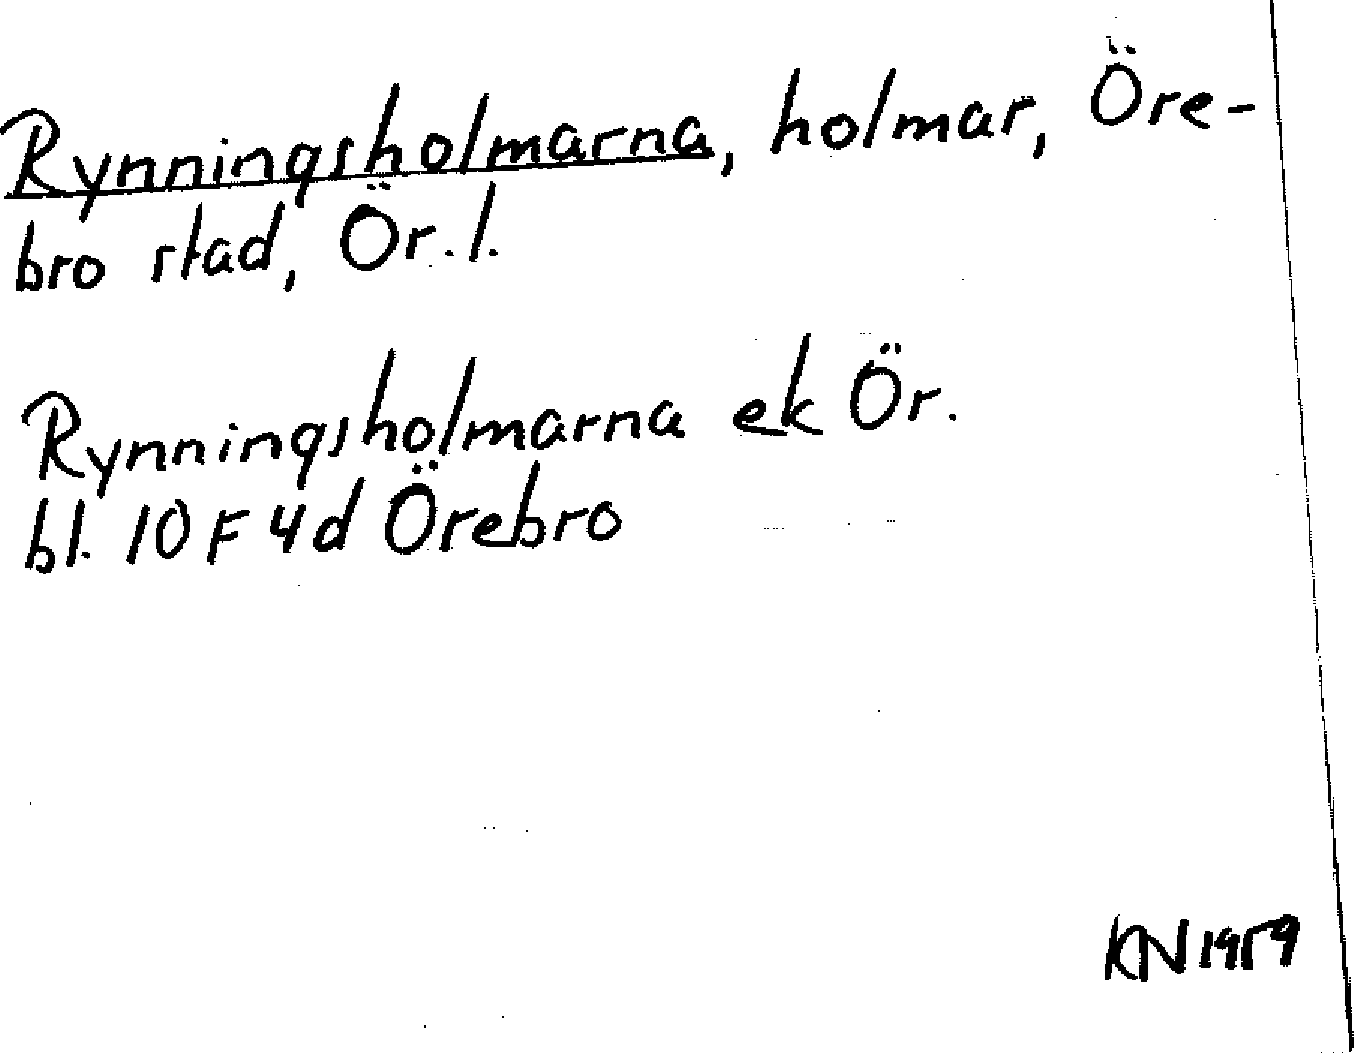 Rynningsholmarna, holmar, Öre-
bro stad, Ör. l.
Rynningsholmarna ek Ör.
bl. 10F 4d Örebro
KN 1959